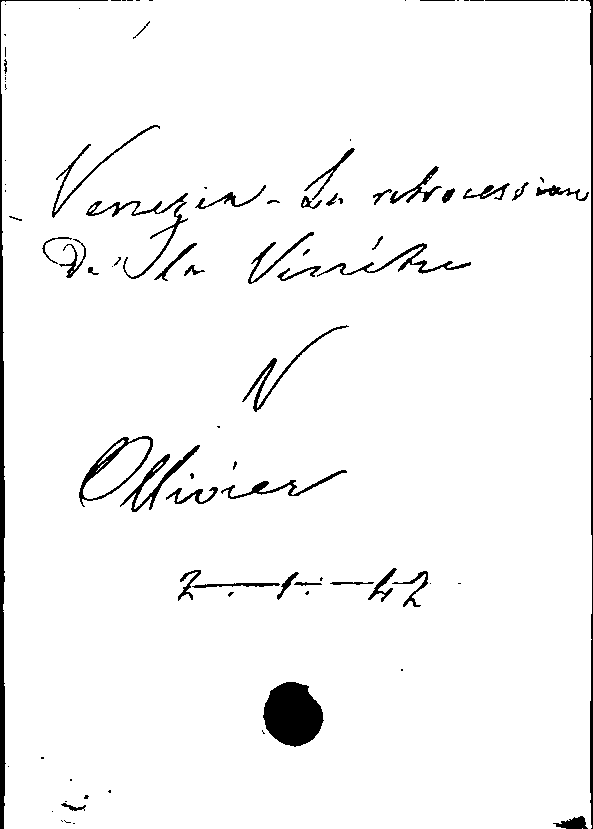 Venezia - La retrocession
De la Vénétie
V
Ollivier
2. 1. 42